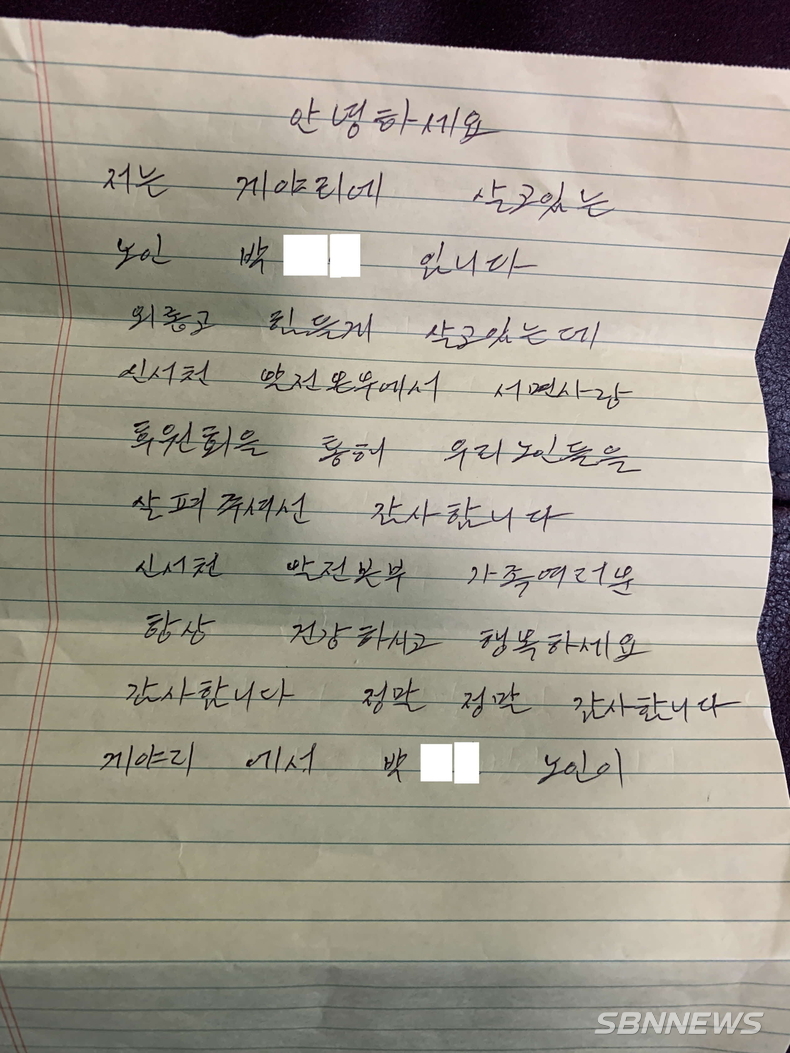 안녕하세요
저는 계야리에 살고있는
노인 박 입니다
외롭고 힘들게 살고있는데
신서천 발전본부에서 서면사랑
후원회을 통해 우리노인들을
살펴주셔선 감사합니다
신서천 발전본부 가족여러분
항상 건강하시고 행복하세요
감사합니다 정말 정말 감사합니다
계야리 에서 박 노인이
SBNNEWS